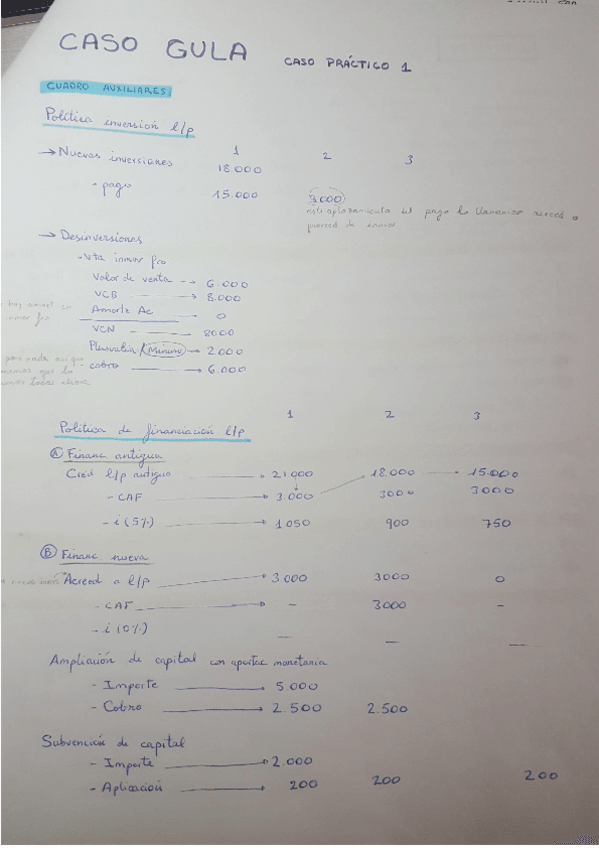 CASO GULA CASO PRÁCTICO 1
CUADRO AUXILIARES
Política inversión l/p
1 2 3
→ Nuevas inversiones 18.000
- pago 15.000 3.000
este aplazamiento del pago lo llamamos acreed o
proveed de inmov
→ Desinversiones
- Vta inmov fro
Valor de venta → 6.000
VCB → 8.000
Amortiz Ac 0
VCN → 8000
Plusvalía / Minusv → 2.000
- cobro → 6.000
1 2 3
Política de financiación l/p
A Financ antigua
Créd l/p antiguo → 21.000 18.000 → 15.000
- CAF → 3.000 3000 3000
- i (5%) → 1050 900 750
B Financ nueva
Acreed a l/p → 3.000 3000 0
- CAF → - 3000 -
- i (0%) — — —
Ampliación de capital con aportac monetaria
- Importe → 5.000
- Cobro → 2.500 2.500
Subvención de capital
- Importe → 2.000
- Aplicación → 200 200 200